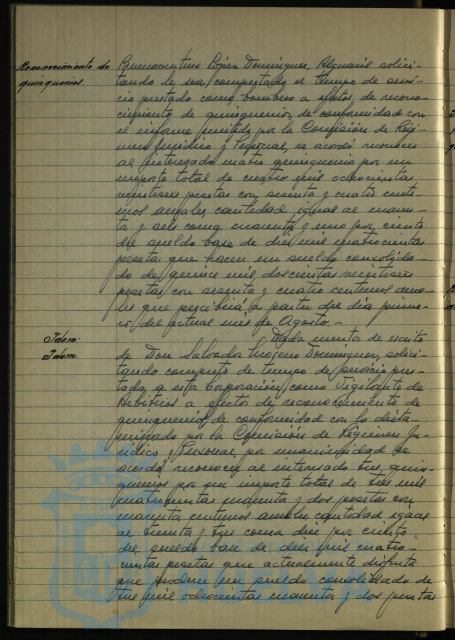 Reconocimiento de
quinquenios.
Buenaventura López Domínguez, Alguacil solici-
tando le sea computado el tiempo de servi-
cio prestado como bombero a efectos de recono-
cimiento de quinquenios, de conformidad con
el informe emitido por la Comisión de Régi-
men Jurídico y Personal, se acordó reconocer
al interesado cuatro quinquenios por un
importe total de cuatro mil ochocientas
veintiseis pesetas con sesenta y cuatro centi-
mos anuales cantidad igual al cuaren-
ta y seis coma cuarenta y uno por ciento
del sueldo base de diez mil cuatrocientas
pesetas que hacen un sueldo consolida-
do de quince mil doscientas veintiseis
pesetas con sesenta y cuatro centimos anua-
les que percibirá a partir del día prime-
ro del actual mes de Agosto.-
Idem.
Idem.
Dada cuenta de escrito
de Don Salvador Domínguez, solici-
tando computo de tiempo de servicio pres-
tado, a esta Corporación como Vigilante de
Arbitrios a efectos de reconocimiento de
quinquenios, de conformidad con lo dicta-
minado por la Comisión de Régimen Ju-
rídico y Personal, por unanimidad se
acordó reconocer al interesado tres quin-
quenios por un importe total de tres mil
cuatrocientas cuarenta y dos pesetas con
cuarenta centimos anuales cantidad igual
al treinta y tres coma diez por ciento
del sueldo base de diez mil cuatro-
cientas pesetas que actualmente disfruta
que produce un sueldo consolidado de
trece mil ochocientas cuarenta y dos pesetas